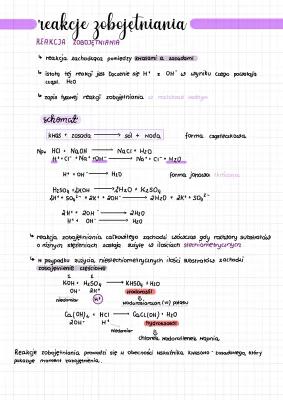 reakcje zobojętniania
REAKCJA ZOBOJĘTNIANIA
↳ reakcja zachodząca pomiędzy kwasami a zasadami
↳ istotą tej reakcji jest łączenie się H⁺ z OH⁻ w wyniku czego powstają
cząst. H₂O
↳ zapis typowej reakcji zobojętniania w roztworze wodnym
schemat
kwas + zasada → sól + woda forma cząsteczkowa
Np. HCl + NaOH → NaCl + H₂O
H⁺ + Cl⁻ + Na⁺ + OH⁻ → Na⁺ + Cl⁻ + H₂O
H⁺ + OH⁻ → H₂O forma jonowa skrócona
H₂SO₄ + 2KOH → 2H₂O + K₂SO₄
2H⁺ + SO₄²⁻ + 2K⁺ + 2OH⁻ → 2H₂O + 2K⁺ + SO₄²⁻
2H⁺ + 2OH⁻ → 2H₂O
H⁺ + OH⁻ → H₂O
↳ reakcja zobojętniania całkowitego zachodzi wówczas gdy roztwory substratów
o różnych stężeniach zostają zużyte w ilościach stechiometrycznych
↳ w przypadku zużycia niestechiometrycznych ilości substratów zachodzi
zobojętnienie częściowe
1 1
KOH + H₂SO₄ → KHSO₄ + H₂O
OH⁻ 2H⁺ wodorosól
niedomiar H⁺ wodorosiarczan (VI) potasu
Ca(OH)₂ + HCl → CaCl(OH) + H₂O
2OH⁻ H⁺ hydroksosól
niedomiar chlorek wodorotlenek wapnia
Reakcje zobojętniania prowadzi się w obecności wskaźnika kwasowo-zasadowego, który
pokazuje moment zobojętnienia.